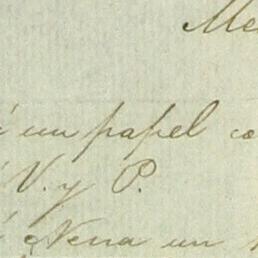 Me
un papel co
V. y P.
Nena un